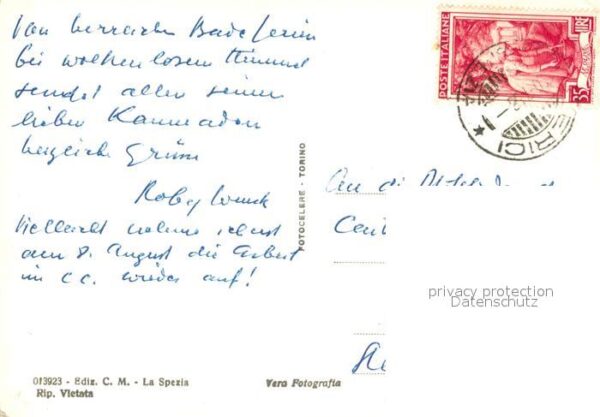 Von herrlichen Badeferien
bei wolkenlosem Himmel
sendet allen seinen
lieben Kameraden
herzliche Grüsse
Roby
Vielleicht nehme ich erst
am 8. August die Arbeit
im CC. wieder auf!
An die
POSTE ITALIANE
LIRE
35
ERICI
FOTOCELERE - TORINO
privacy protection
Datenschutz
013923 - Ediz. C. M. - La Spezia
Rip. Vietata
Vera Fotografia